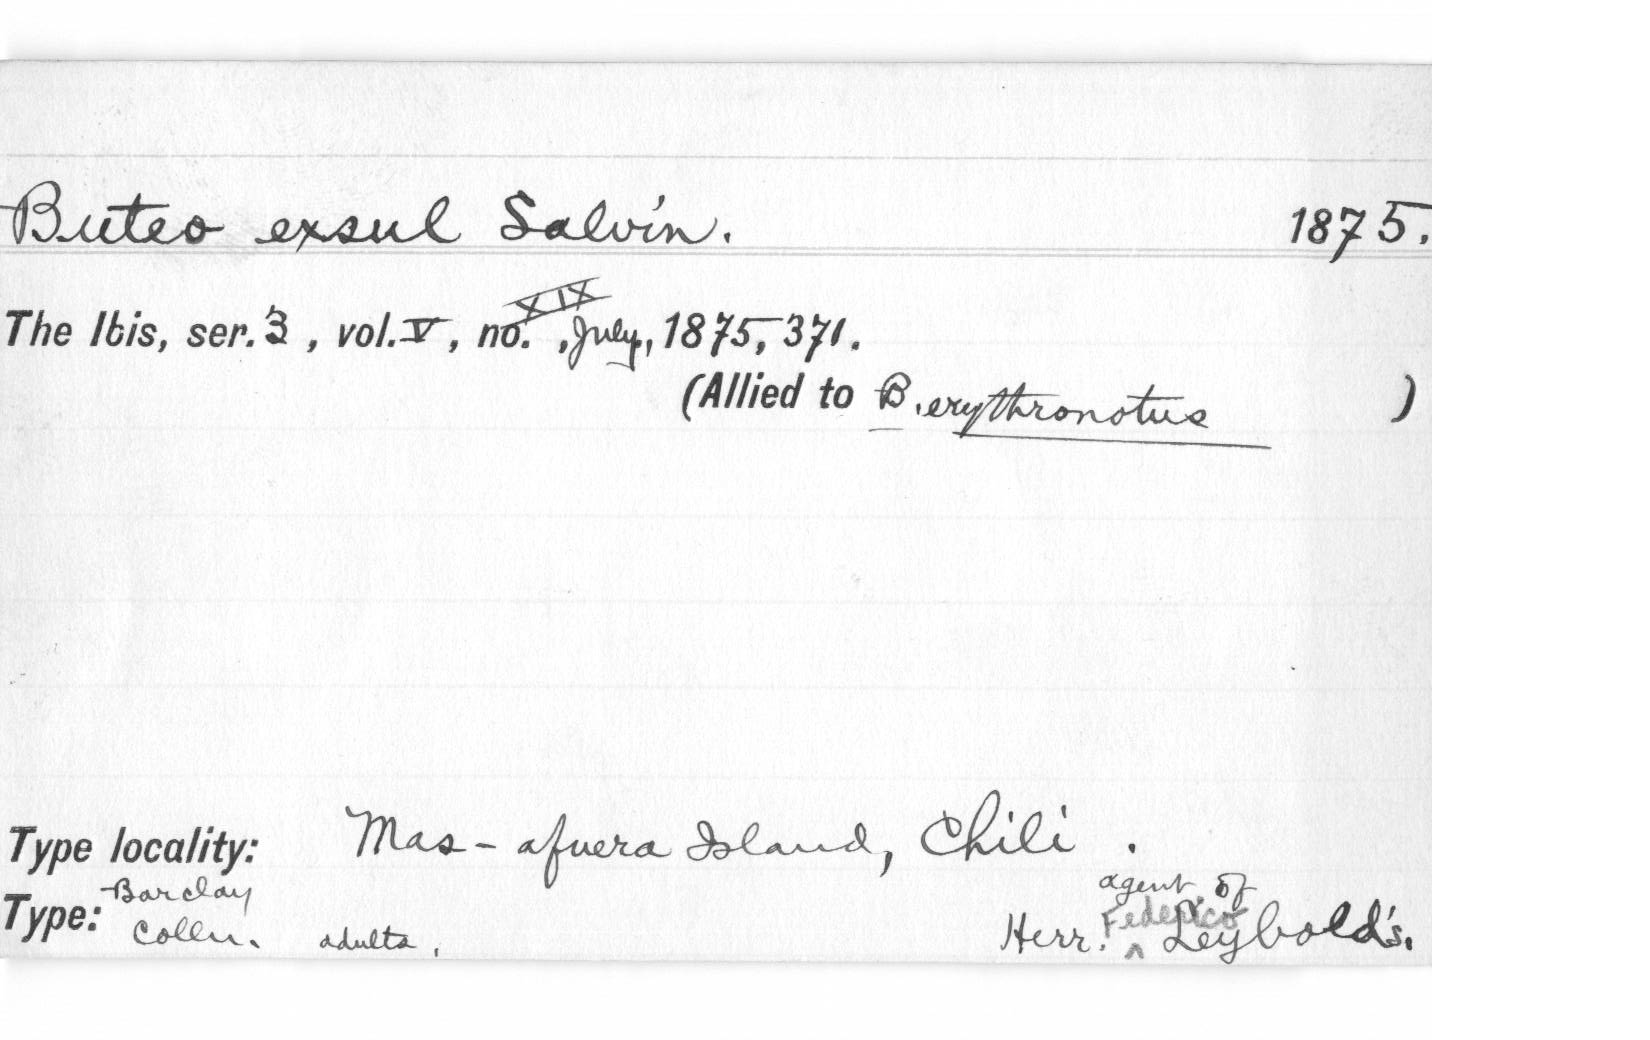 Buteo exsul Salvin. 1875.
The Ibis, ser. 3, vol. V, no. XIX, July, 1875, 371.
(Allied to B. erythronotus )
Type locality: Mas-afuera Island, Chili.
Type: Barclay Colln. adults. agent of Herr. Federico Leybold's.